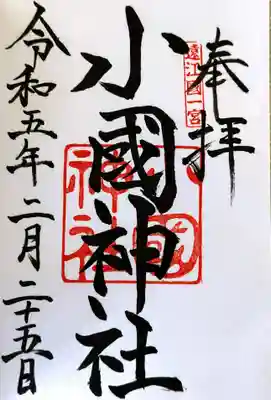 奉拝
遠江國一宮
小國神社
令和五年二月二十五日